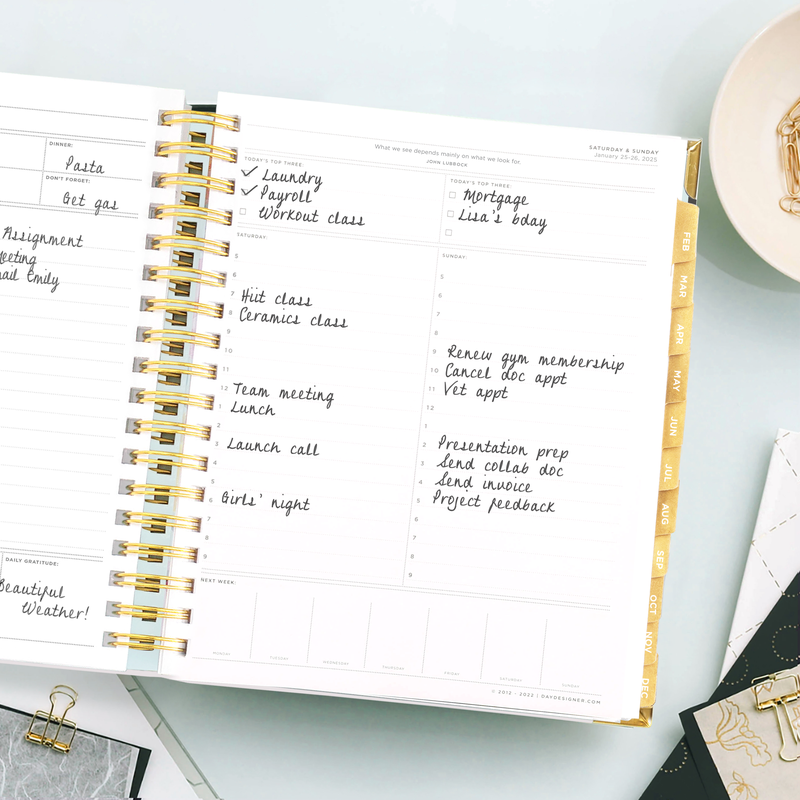 DINNER:
Pasta
DON'T FORGET:
Get gas
Assignment
Emily
DAILY GRATITUDE:
Beautiful
Weather!
What we see depends mainly on what we look for.
JOHN LUBBOCK
SATURDAY & SUNDAY
January 25-26, 2025
TODAY'S TOP THREE:
Laundry
Payroll
Workout class
TODAY'S TOP THREE:
Mortgage
Lisa's bday
SATURDAY:
5
6
7 Hiit class
8 Ceramics class
9
10
11
12 Team meeting
1 Lunch
2
3 Launch call
4
5
6 Girls' night
7
8
9
SUNDAY:
5
6
7
8
9 Renew gym membership
10 Cancel doc appt
11 Vet appt
12
1
2 Presentation prep
3 Send collab doc
4 Send invoice
5 Project feedback
6
7
8
9
NEXT WEEK:
MONDAY
TUESDAY
WEDNESDAY
THURSDAY
FRIDAY
SATURDAY
SUNDAY
© 2012 - 2023 | DAYDESIGNER.COM
FEB
MAR
APR
MAY
JUN
JUL
AUG
SEP
OCT
NOV
DEC